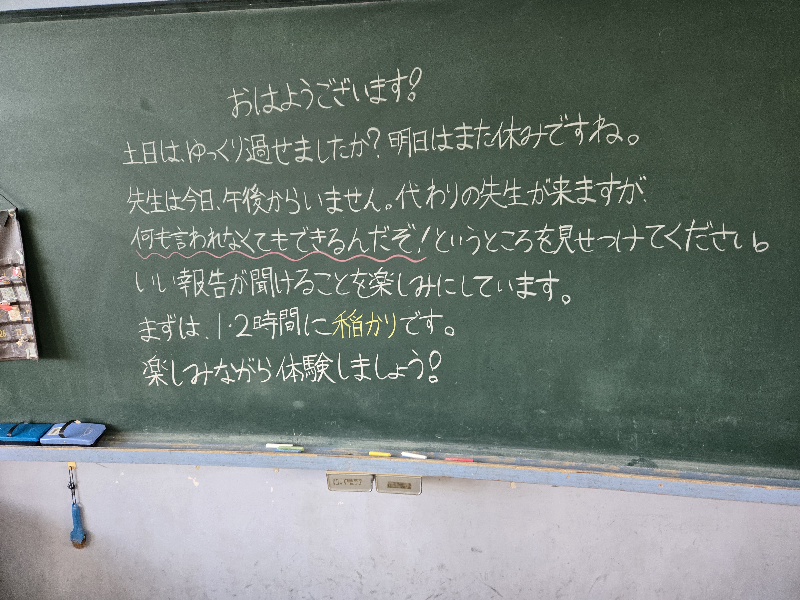 おはようございます!
土日は、ゆっくり過せましたか?明日はまた休みですね。
先生は今日、午後からいません。代わりの先生が来ますが、
何も言われなくてもできるんだぞ!というところを見せつけてください。
いい報告が聞けることを楽しみにしています。
まずは、1・2時間に稲かりです。
楽しみながら体験しましょう!